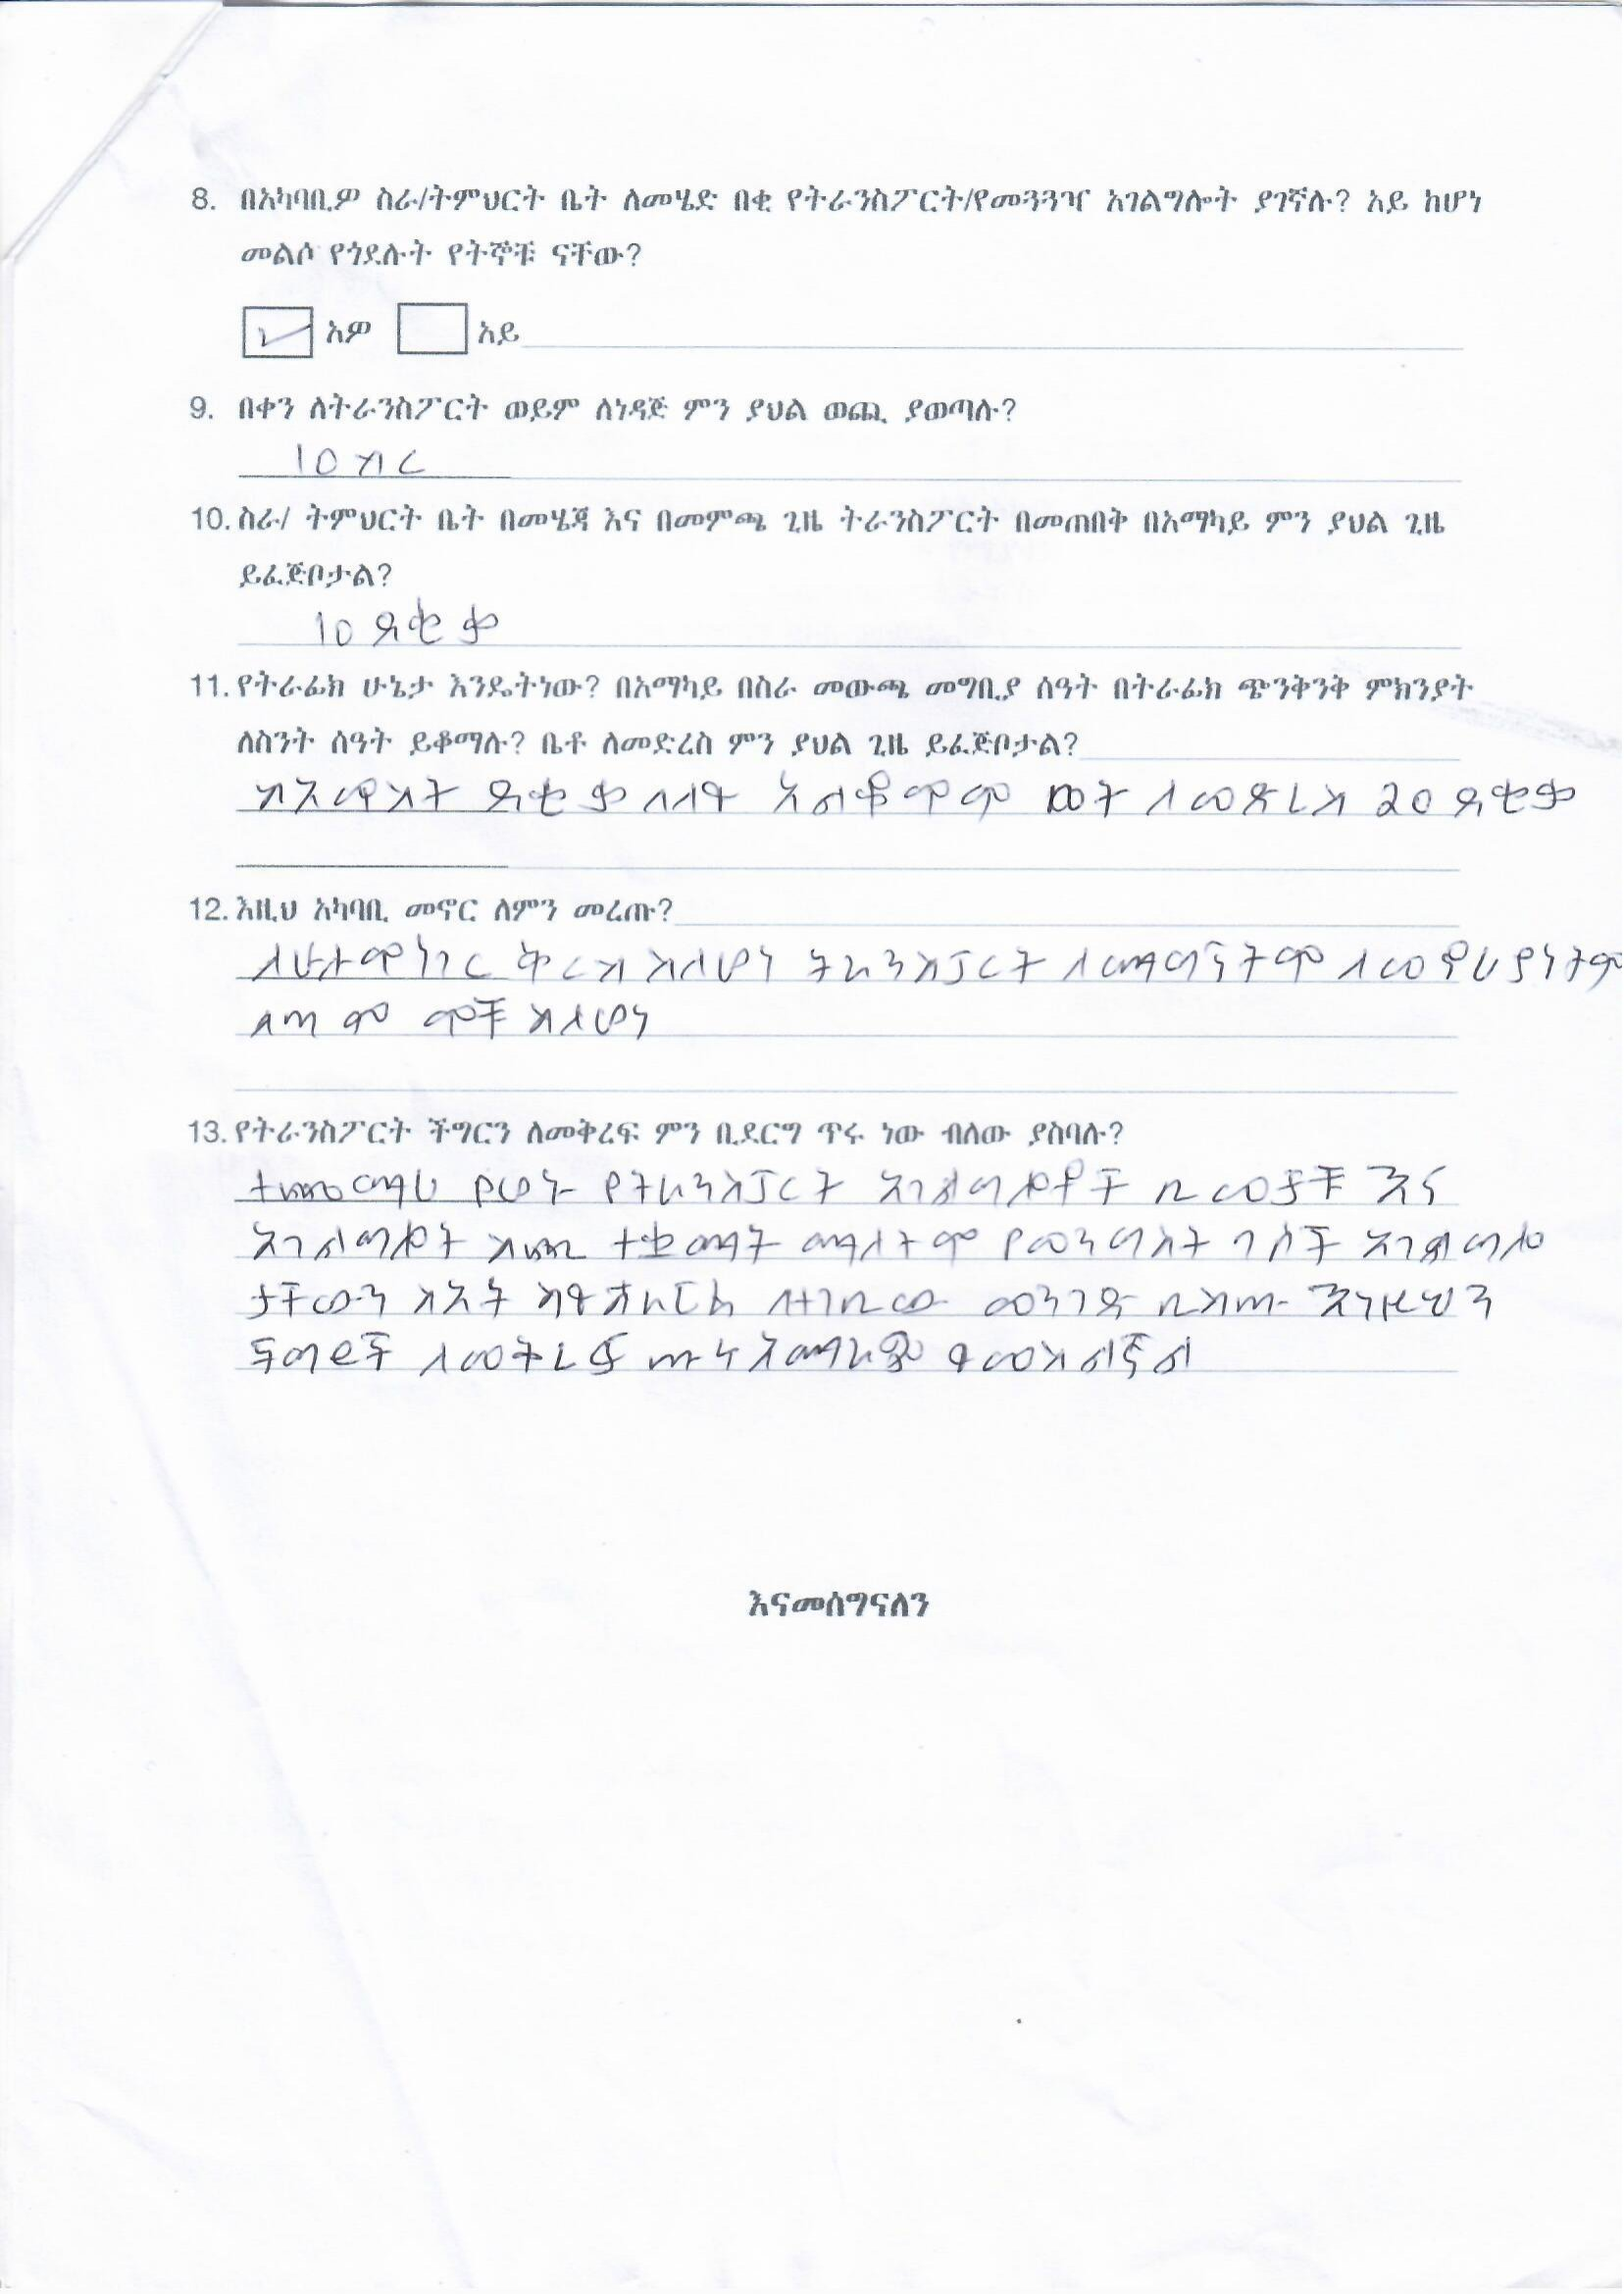 8. በአካባቢዎ ስራ/ትምህርት ቤት ለመሄድ በቂ የትራንስፖርት/የመጓጓዣ አገልግሎት ያገኛሉ? አይ ከሆነ
መልሶ የጎደሉት የትኞቹ ናቸው?
አዎ አይ
9. በቀን ለትራንስፖርት ወይም ለነዳጅ ምን ያህል ወጪ ያወጣሉ?
10 ብር
10. ስራ/ ትምህርት ቤት በመሄጃ እና በመምጫ ጊዜ ትራንስፖርት በመጠበቅ በአማካይ ምን ያህል ጊዜ
ይፈጅቦታል?
10 ደቂቃ
11. የትራፊክ ሁኔታ እንዴትነው? በአማካይ በስራ መውጫ መግቢያ ሰዓት በትራፊክ ጭንቅንቅ ምክንያት
ለስንት ሰዓት ይቆማሉ? ቤቶ ለመድረስ ምን ያህል ጊዜ ይፈጅቦታል?
ከአምስት ደቂቃ በላይ አልቆምም ቤት ለመድረስ 20 ደቂቃ
12. እዚህ አካባቢ መኖር ለምን መረጡ?
ለሁሉም ነገር ቅርብ ስለሆነ ትራንስፖርት ለማግኘትም
ስለሆነ
13. የትራንስፖርት ችግርን ለመቅረፍ ምን ቢደርግ ጥሩ ነው ብለው ያስባሉ?
ተመጣጣኝ የሆኑ የትራንስፖርት አገልግሎቶች ቢመቻቹ እና
አገልግሎት ሰጪ ተቋማት ማለትም የመንግስት አገልግሎ
ታቸውን መንገድ ቢሰጡ እነዚህን
ችግሮች ለመቅረፍ ጥሩ አማራጭ ይመስለኛል
እናመሰግናለን